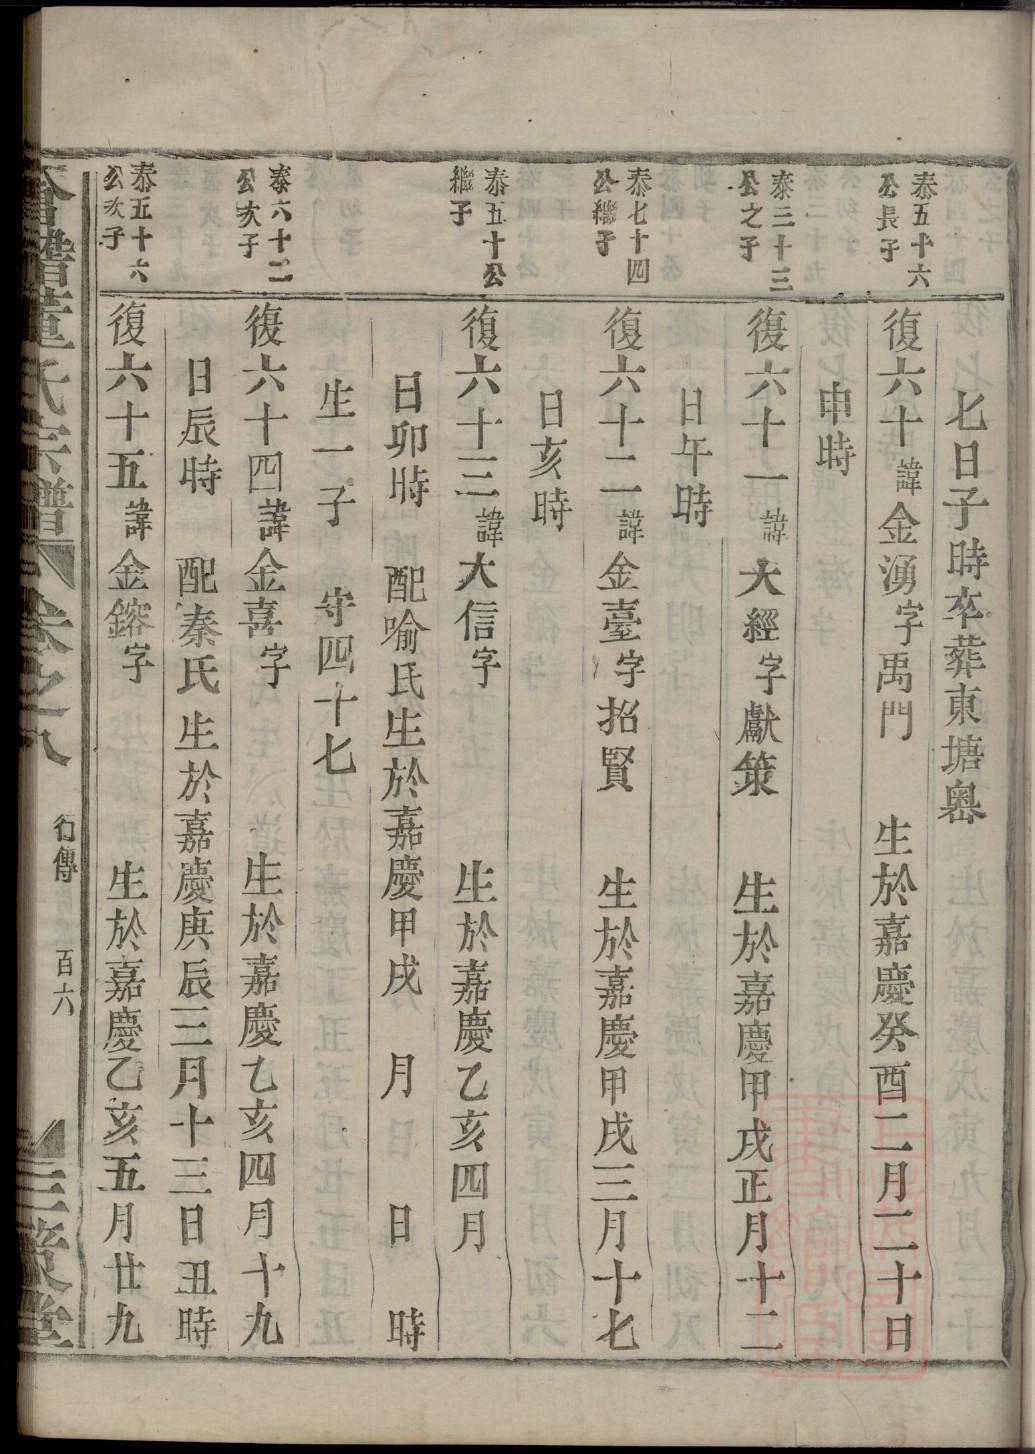 七日子時卒葬東塘嶴
泰五十六公長子
復六十諱金湧字禹門 生於嘉慶癸酉二月二十日
申時
泰三十三公之子
復六十一諱大經字獻策 生於嘉慶甲戌正月十二
日午時
泰七十四公繼子
復六十二諱金臺字招賢 生於嘉慶甲戌三月十七
日亥時
泰五十公繼子
復六十三諱大信字 生於嘉慶乙亥四月
日卯時 配喻氏生於嘉慶甲戌 月 日 時
生一子 守四十七
泰六十二公次子
復六十四諱金喜字 生於嘉慶乙亥四月十九
日辰時 配秦氏生於嘉慶庚辰三月十三日丑時
泰五十六公次子
復六十五諱金鎔字 生於嘉慶乙亥五月廿九
董氏宗譜 卷之八 行傳 百六 三策堂